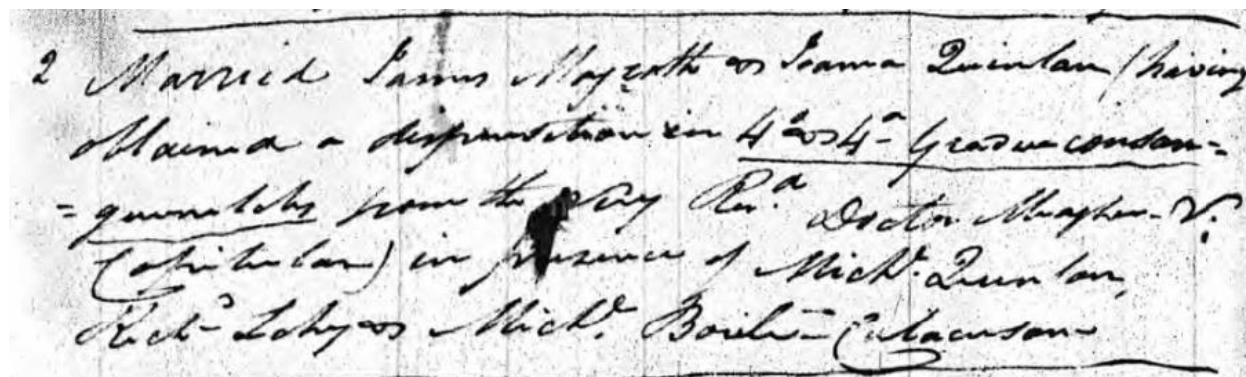 2 Married James Magrath & Joanna Quinlan (having
obtained a dispensation in 4º & 4º Gradu consan=
=guinitatis from the Very Revd Doctor Meagher V.
Capitular) in presence of Michl. Quinlan,
Richd Lahy & Michl.